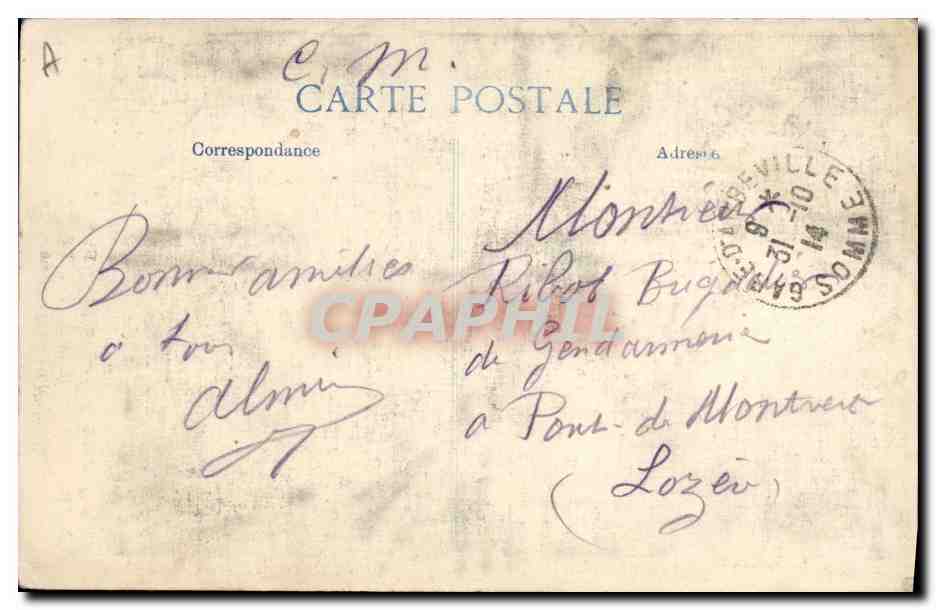 A
C. M.
CARTE POSTALE
Correspondance
Adresse
Bonnes amitiés
à tous
Monsieur
Ribot Brigadier
de Gendarmerie
à Pont-de Montvert
(Lozère)
GARE D'ABBEVILLE SOMME
9 *
31 - 10
14
CPAPHIL